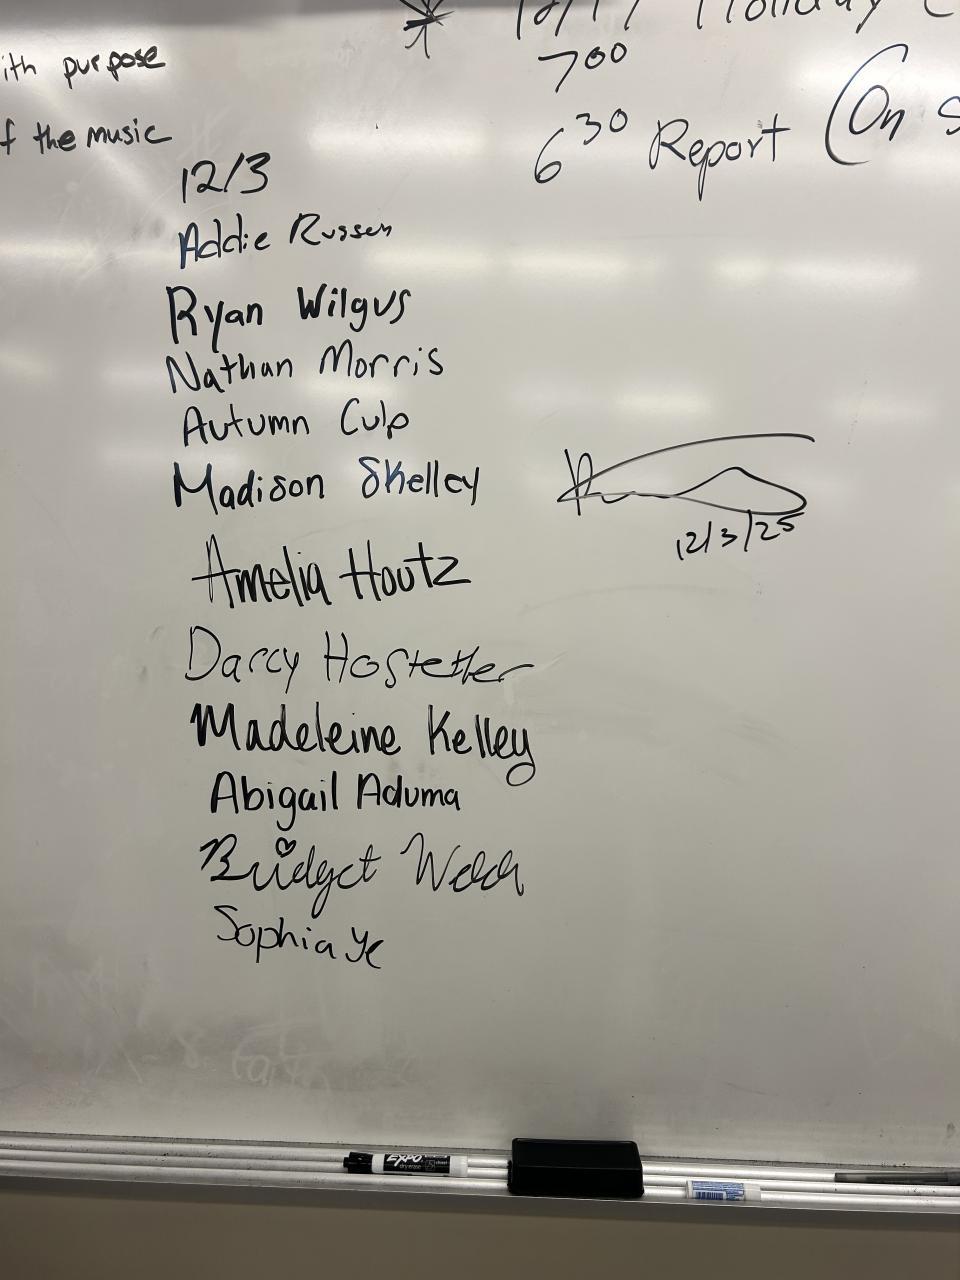 12/17 Holiday
7 00
6 30 Report (On
with purpose
of the music
12/3
Addie Russen
Ryan Wilgus
Nathan Morris
Autumn Culp
Madison Skelley
12/3/25
Amelia Houtz
Darcy Hostetler
Madeleine Kelley
Abigail Aduma
Bridget Welch
Sophia Ye
EXPO
dry erase